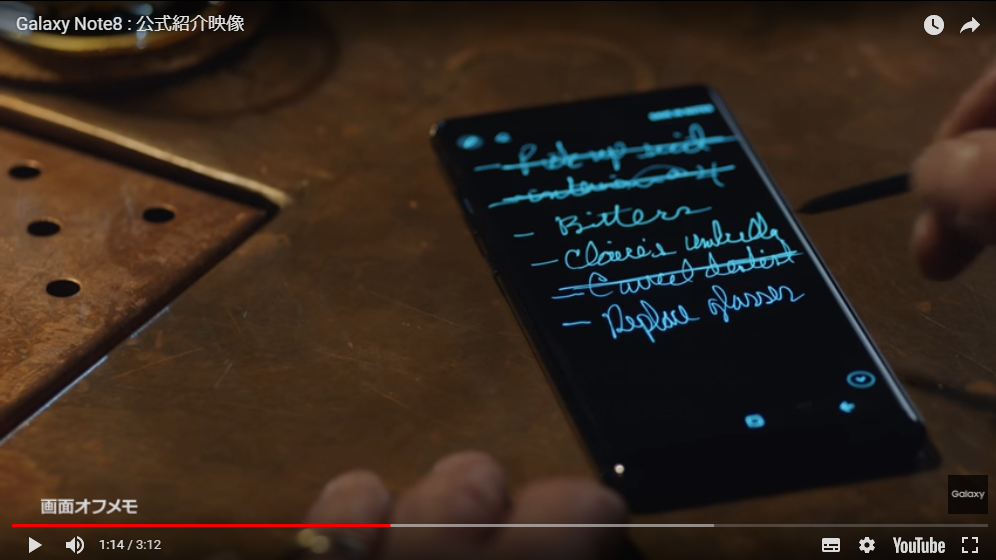 Galaxy Note8 : 公式紹介映像
- Pick up
- Bitters
- Claire's umbrella
- Cancel dentist
- Replace glasses
Galaxy
画面オフメモ
1:14 / 3:12
YouTube